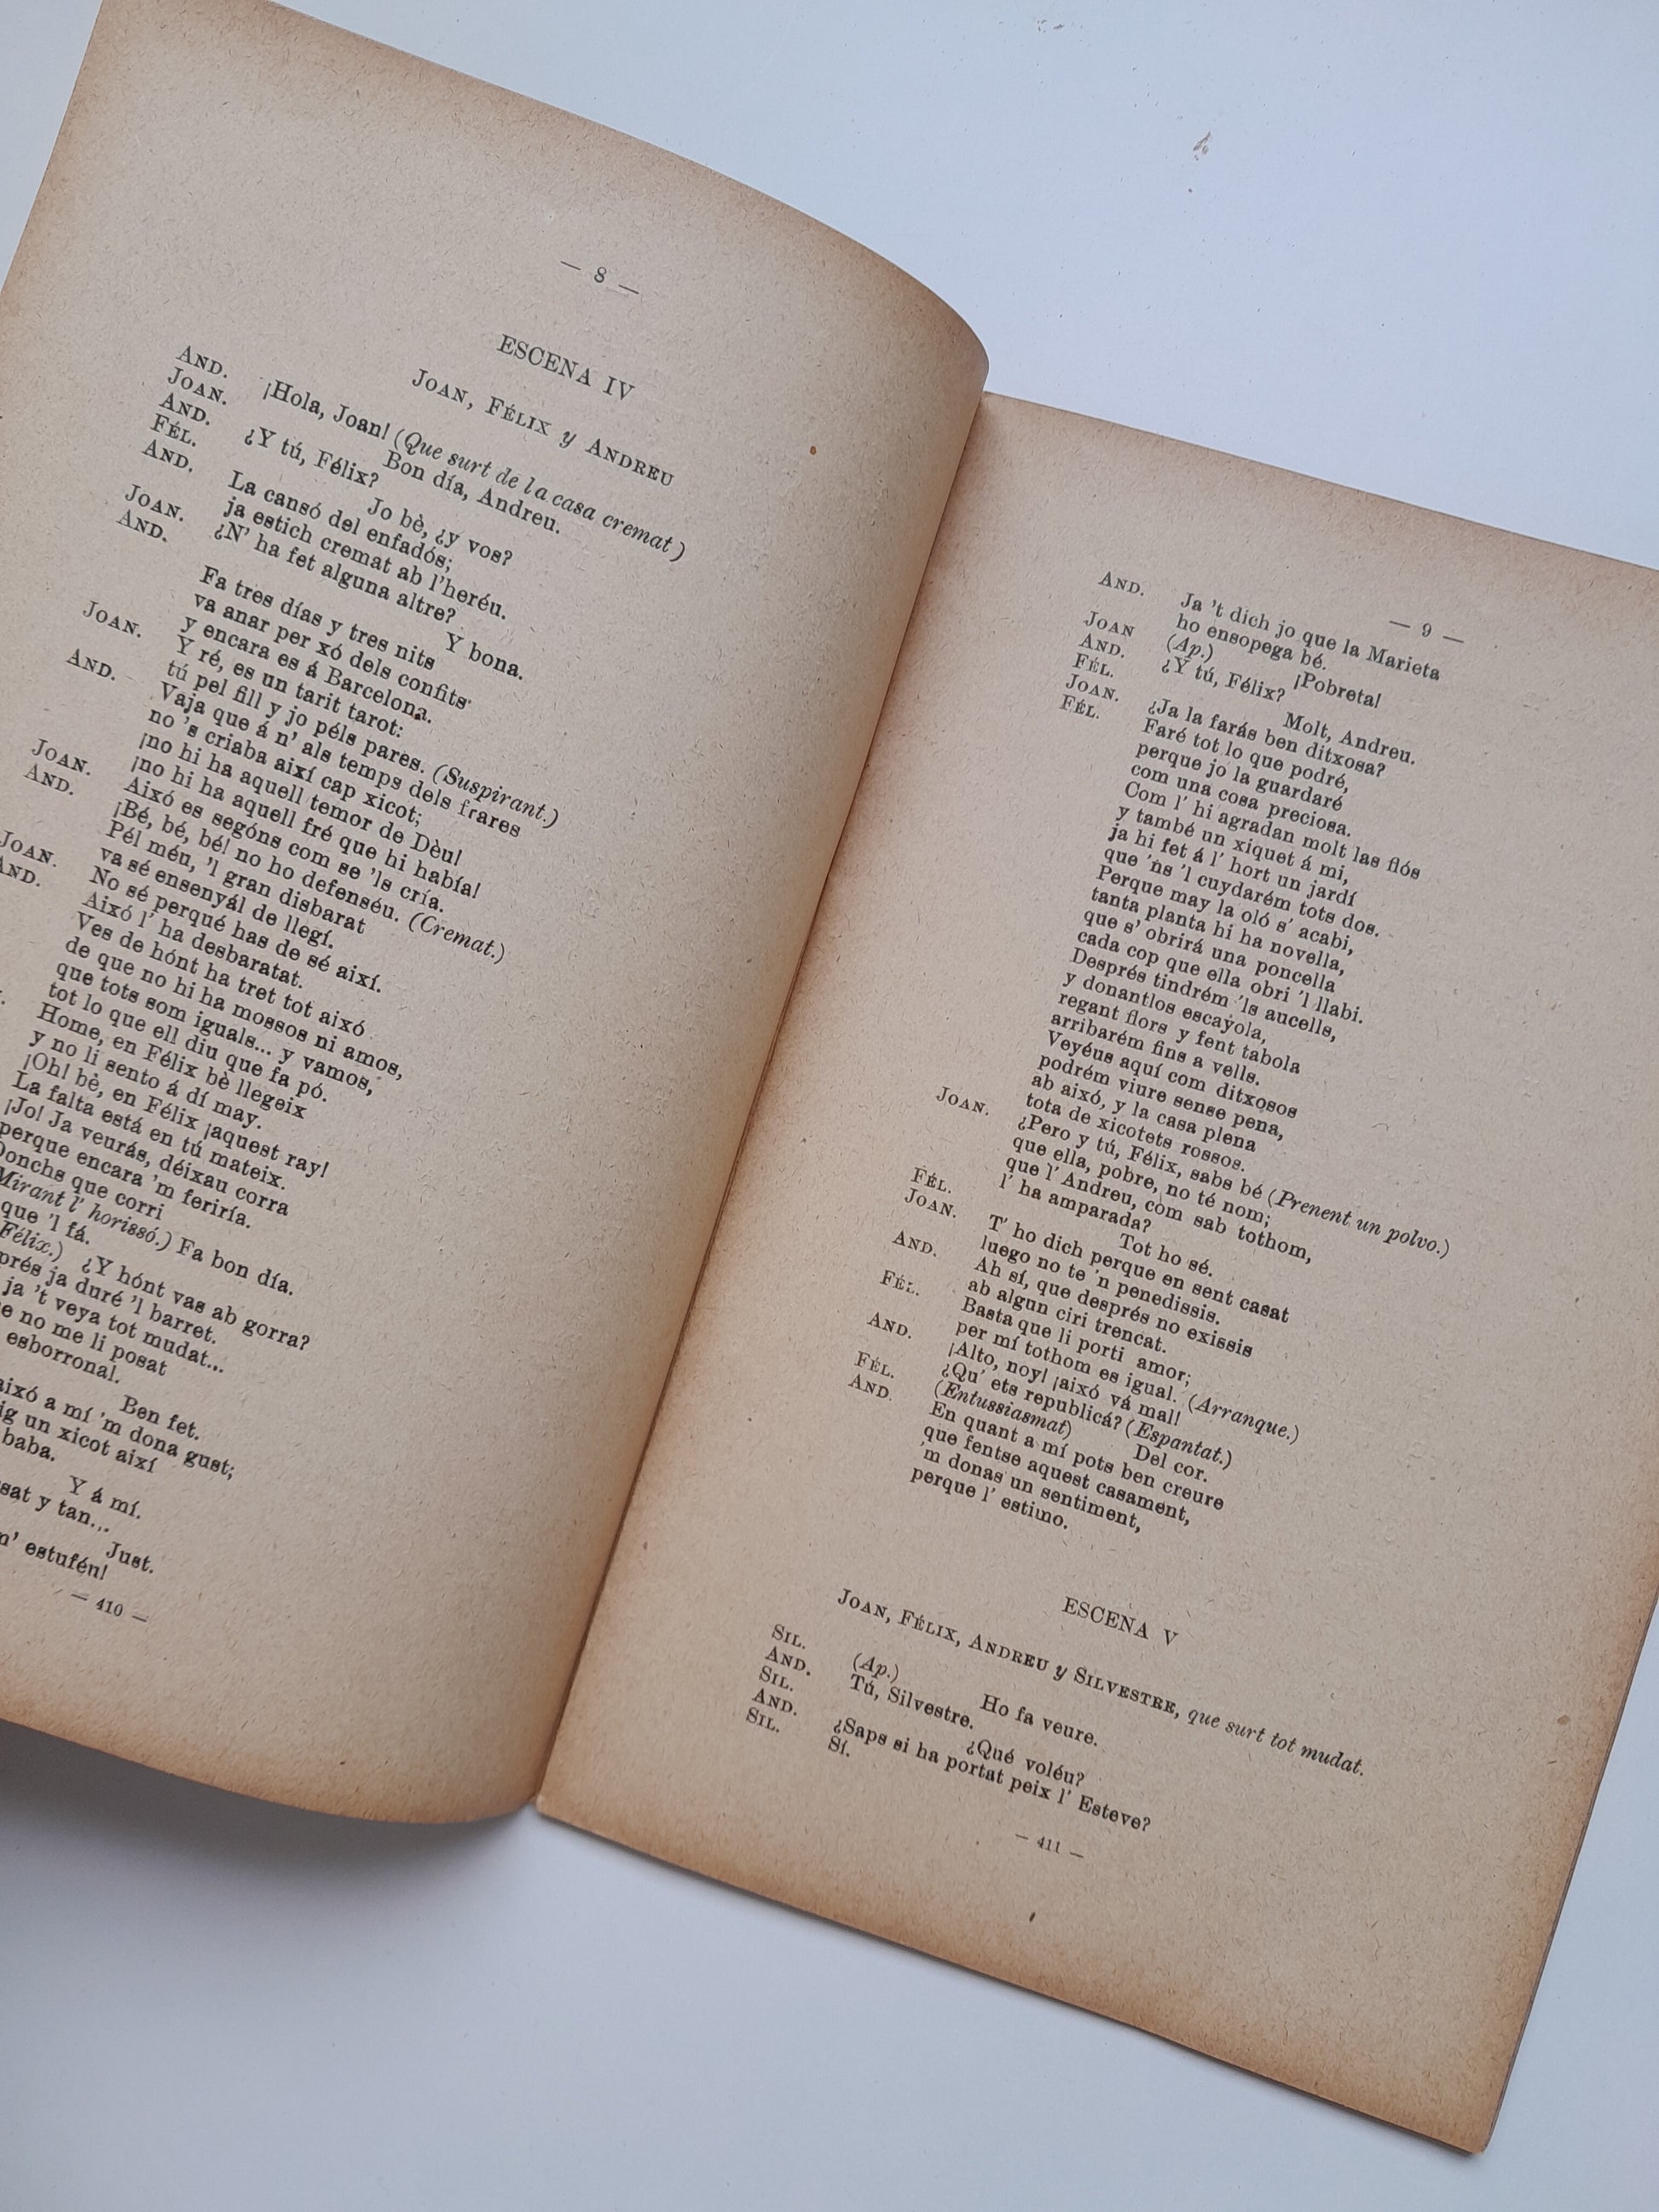 — 8 —
ESCENA IV
JOAN, FÉLIX y ANDREU
AND. ¡Hola, Joan! (Que surt de la casa cremat)
JOAN. Bon día, Andreu.
AND. ¿Y tú, Félix?
FÉL. Jo bè, ¿y vos?
AND. La cansó del enfadós;
ja estich cremat ab l'heréu.
JOAN. ¿N' ha fet alguna altre?
AND. Y bona.
Fa tres días y tres nits
va anar per xó dels confits
y encara es á Barcelona.
JOAN. Y ré, es un tarit tarot:
tú pel fill y jo péls pares. (Suspirant.)
AND. Vaja que á n' als temps dels frares
no 's criaba així cap xicot;
¡no hi ha aquell temor de Dèu!
¡no hi ha aquell fré que hi había!
JOAN. Aixó es segóns com se 'ls cría.
AND. ¡Bé, bé, bé! no ho defenséu. (Cremat.)
Pél méu, 'l gran disbarat
va sé ensenyál de llegí.
JOAN. No sé perqué has de sé així.
AND. Aixó l' ha desbaratat.
Ves de hónt ha tret tot aixó
de que no hi ha mossos ni amos,
que tots som iguals... y vamos,
tot lo que ell diu que fa pó.
Home, en Félix bè llegeix
y no li sento á dí may.
¡Oh! bè, en Félix ¡aquest ray!
La falta está en tú mateix.
¡Jo! Ja veurás, déixau corra
perque encara 'm feriría.
Donchs que corri
Mirant l' horissó.) Fa bon día.
que 'l fá.
Félix.) ¿Y hónt vas ab gorra?
ja duré 'l barret.
ja 't veya tot mudat...
no me li posat
esborronal.
Ben fet.
aixó a mí 'm dona gust;
un xicot així
baba.
Y á mí.
y tan...
Just.
m' estuféu!
— 410 —
— 9 —
AND. Ja 't dich jo que la Marieta
ho ensopega bé.
JOAN (Ap.) ¡Pobreta!
AND. ¿Y tú, Félix?
FÉL. Molt, Andreu.
JOAN. ¿Ja la farás ben ditxosa?
FÉL. Faré tot lo que podré,
perque jo la guardaré
com una cosa preciosa.
Com l' hi agradan molt las flós
y també un xiquet á mi,
ja hi fet á l' hort un jardí
que 'ns 'l cuydarém tots dos.
Perque may la oló s' acabi,
tanta planta hi ha novella,
que s' obrirá una poncella
cada cop que ella obri 'l llabi.
Després tindrém 'ls aucells,
y donantlos escayola,
regant flors y fent tabola
arribarém fins a vells.
Veyéus aquí com ditxosos
podrém viure sense pena,
ab aixó, y la casa plena
tota de xicotets rossos.
JOAN. ¿Pero y tú, Félix, sabs bé (Prenent un polvo.)
que ella, pobre, no té nom;
que l' Andreu, com sab tothom,
l' ha amparada?
FÉL. Tot ho sé.
JOAN. T' ho dich perque en sent casat
luego no te 'n penedissis.
AND. Ah sí, que després no exissis
ab algun ciri trencat.
FÉL. Basta que li porti amor;
per mí tothom es igual. (Arranque.)
AND. ¡Alto, noy! ¡aixó vá mal!
¿Qu' ets republicá? (Espantat.)
FÉL. (Entussiasmat) Del cor.
AND. En quant a mí pots ben creure
que fentse aquest casament,
'm donas un sentiment,
perque l' estimo.
ESCENA V
JOAN, FÉLIX, ANDREU y SILVESTRE, que surt tot mudat.
SIL. (Ap.) Ho fa veure.
AND. Tú, Silvestre.
SIL. ¿Qué voléu?
AND. ¿Saps si ha portat peix l' Esteve?
SIL. Sí.
— 411 —